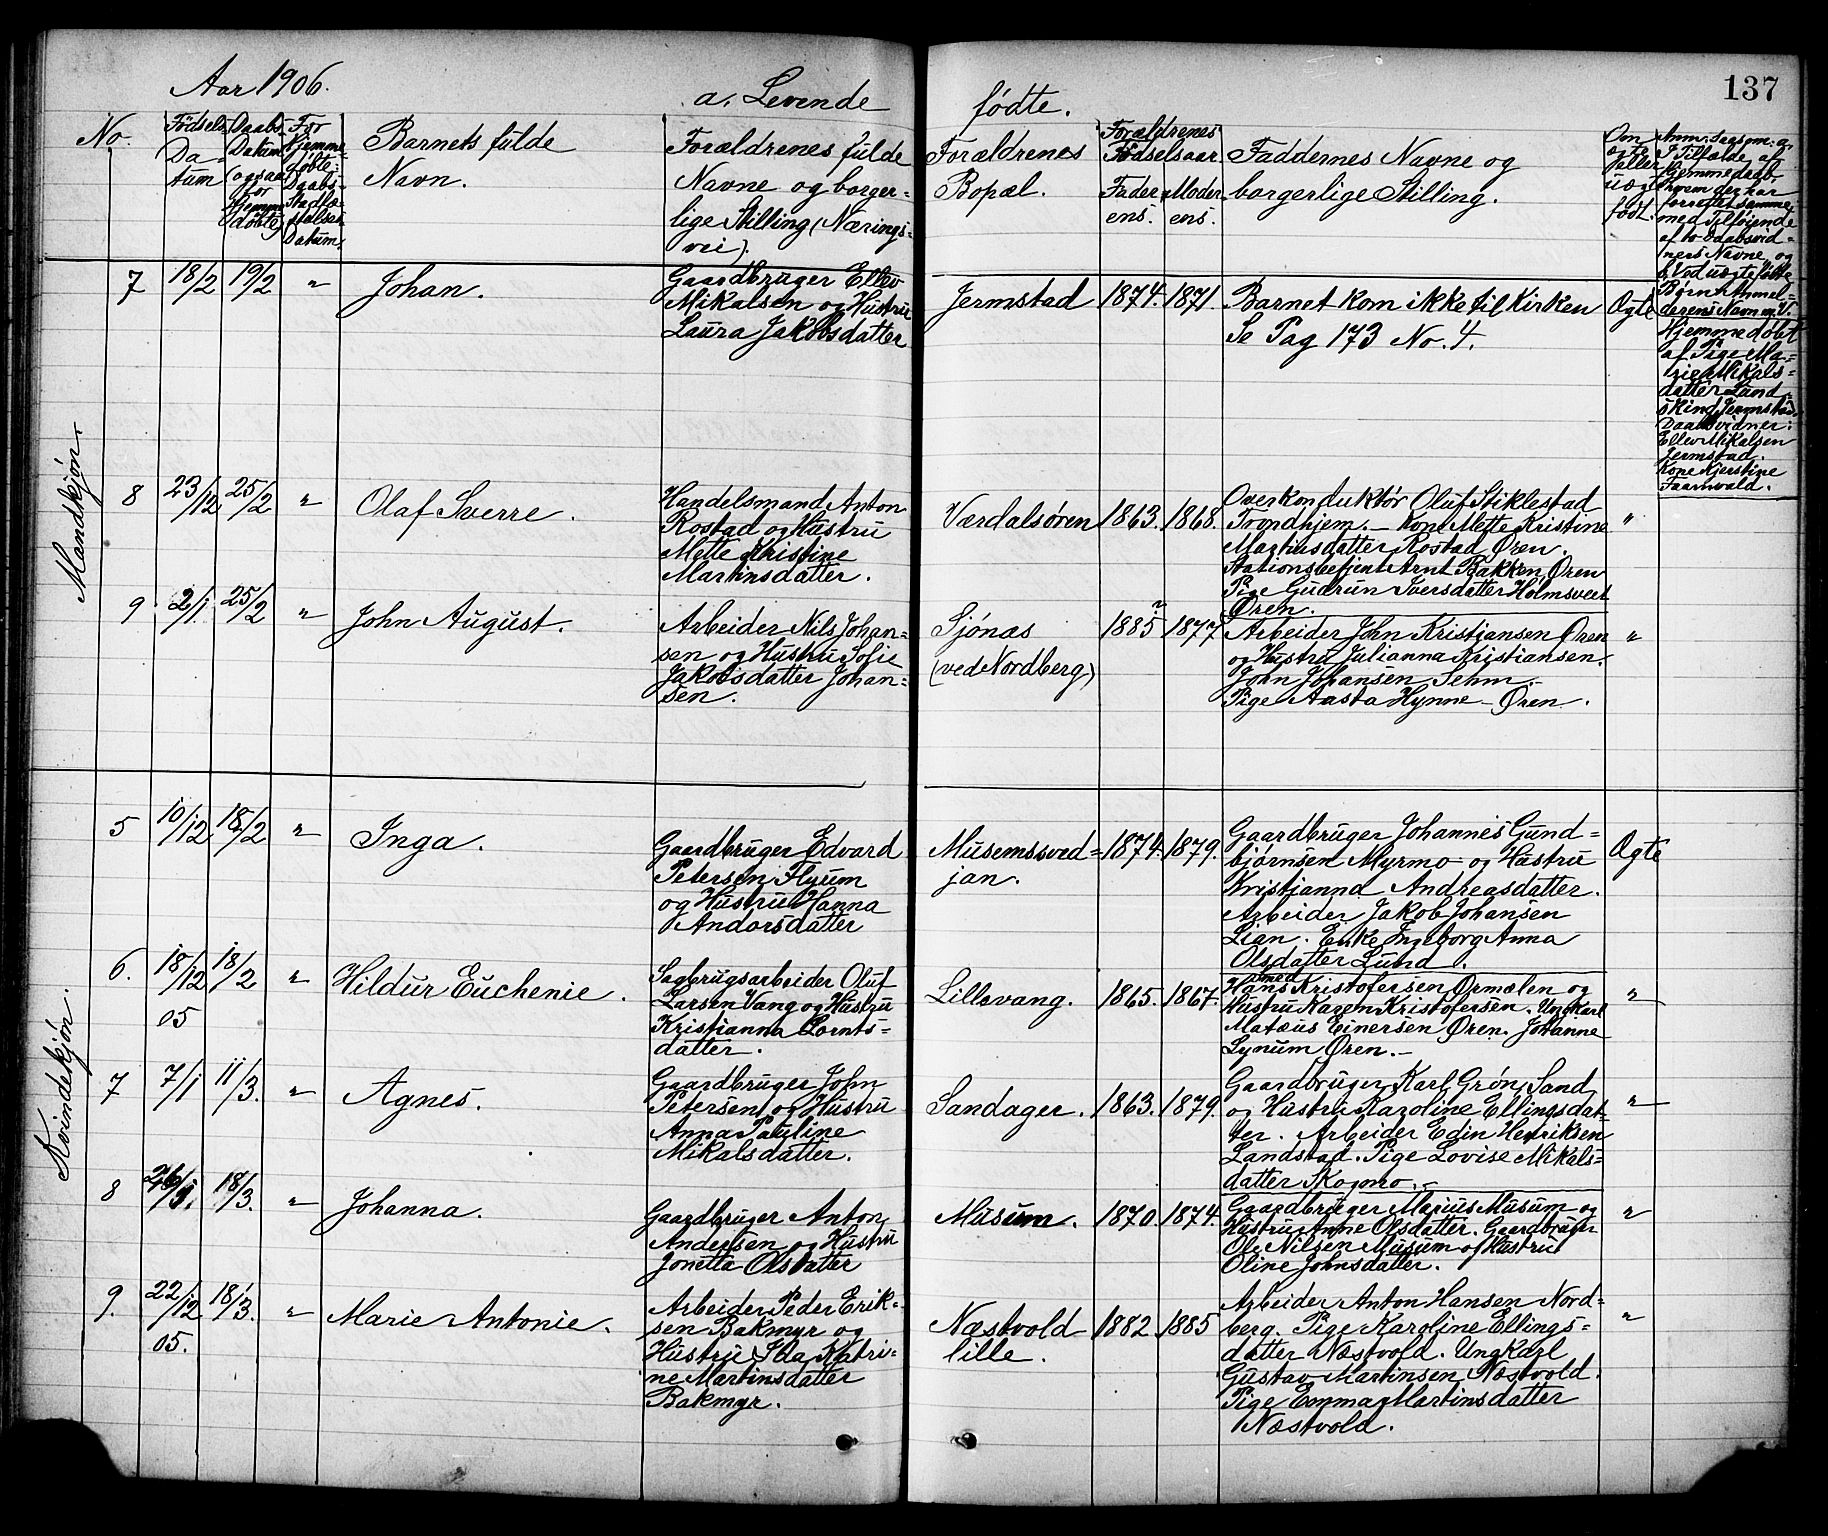 137
Aar 1906.
a. Levende
fødte.
No.
Fødsels
Da
tum
Daabs
Datum
(ogsaa
for
Hjemme
døbte)
For
Hjemme-
døbte:
Daabs-
Stadfæ-
stelses
Datum
Barnets fulde
Navn.
Forældrenes fulde
Navne og borger-
lige Stilling (Nærings-
vei).
Forældrenes
Bopæl.
Forældrenes
Fødselsaar
Fader
ens.
Moder
ens.
Faddernes Navne og
borgerlige Stilling.
Om
ægte
eller
uæg
født.
Mandkjøn.
7 18/2 19/2 " Johan.
Gaardbruger Ellev
Mikalsen og Hustru
Laura Jakobsdatter
Jermstad 1874. 1871.
Barnet kom ikke til Kirken
Se Pag 173 No. 4.
Ægte
Hjemmedøbt
af Pige Ma-
rie Mikals-
datter Lund
skind Jermstad
Daabsvidner:
Ellev Mikalsen
Jermstad.
Kone Kjerstine
Faarnvald.
8 23/12 25/2 " Olaf Sverre.
Handelsmand Anton
Rostad og Hustru
Mette Kristine
Martinsdatter.
Værdalsøren 1863. 1868.
Overkonduktør Oluf Stiklestad
Trondhjem. - Kone Mette Kristine
Martinsdatter Rostad Øren.
Stationsbetjent Arnt Bakken, Øren
Pige Gudrun Iversdatter Holmsveet
Øren.
"
9 2/1. 25/2 " John August.
Arbeider Nils Johan-
sen og Hustru Sofie
Jakobsdatter Johan-
sen.
Sjónas
(ved Nordberg)
1885 1877
Arbeider John Kristjansen Øren
og Hustru Julianna Kristiansen.
John Johansen Sehm.
Pige Aasta Hynne - Øren.
"
Kvindekjøn.
5 10/12 18/2 " Inga.
Gaardbruger Edvard
Petersen Flyum
og Hustru Hanna
Andorsdatter
Musemsved-
jan.
1874. 1879.
Gaardbruger Johannes Gund-
bjørnsen Myrmo og Hustru
Kristjanna Andreasdatter.
Arbeider Jakob Johansen
Lian. Enke Ingeborg Anna
Olsdatter Lund.
Ægte
6. 18/12 05 18/2 " Hildur Euchenie.
Sagbrugsarbeider Oluf
Larsen Vang og Hustru
Kristjanna Lornts-
datter.
Lillevang. 1865. 1867.
Smed
Hans Kristofersen Ørmælen og
Hustru Karen Kristofersen. Ungkarl
Matæus Einersen Øren. Johanne
Lynum Øren. -
"
7 7/1 11/3. " Agnes.
Gaardbruger John
Petersen og Hustru
Anna Pauline
Mikalsdatter.
Sandager. 1863. 1879.
Gaardbruger Karl Grøn, Sand
og Hustru Karoline Ellingsdat-
ter. Arbeider Edin Henriksen
Landstad. Pige Lovise Mikals-
datter Skogmo. -
"
8 18/3. " Johanna.
Gaardbruger Anton
Andersen og Hustru
Jonetta Olsdatter
Musum. 1870. 1874.
Gaardbruger Marius Musum og
Hustru Anne Olsdatter. Gaardbruger
Ole Nilsen Musum og Hustru
Oline Johnsdatter.
"
9. 22/12 05. 18/3. " Marie Antonie.
Arbeider Peder Erik-
sen Bakmyr og
Hustru Ida Katri-
ne Martinsdatter
Bakmyr.
Næstvold
lille.
1882. 1885
Arbeider Anton Hansen Nord-
berg. Pige Karoline Ellings-
datter Næstvold. Ungkarl
Gustav Martinsen Næstvold.
Pige Emma Martinsdatter
Næstvold.
"